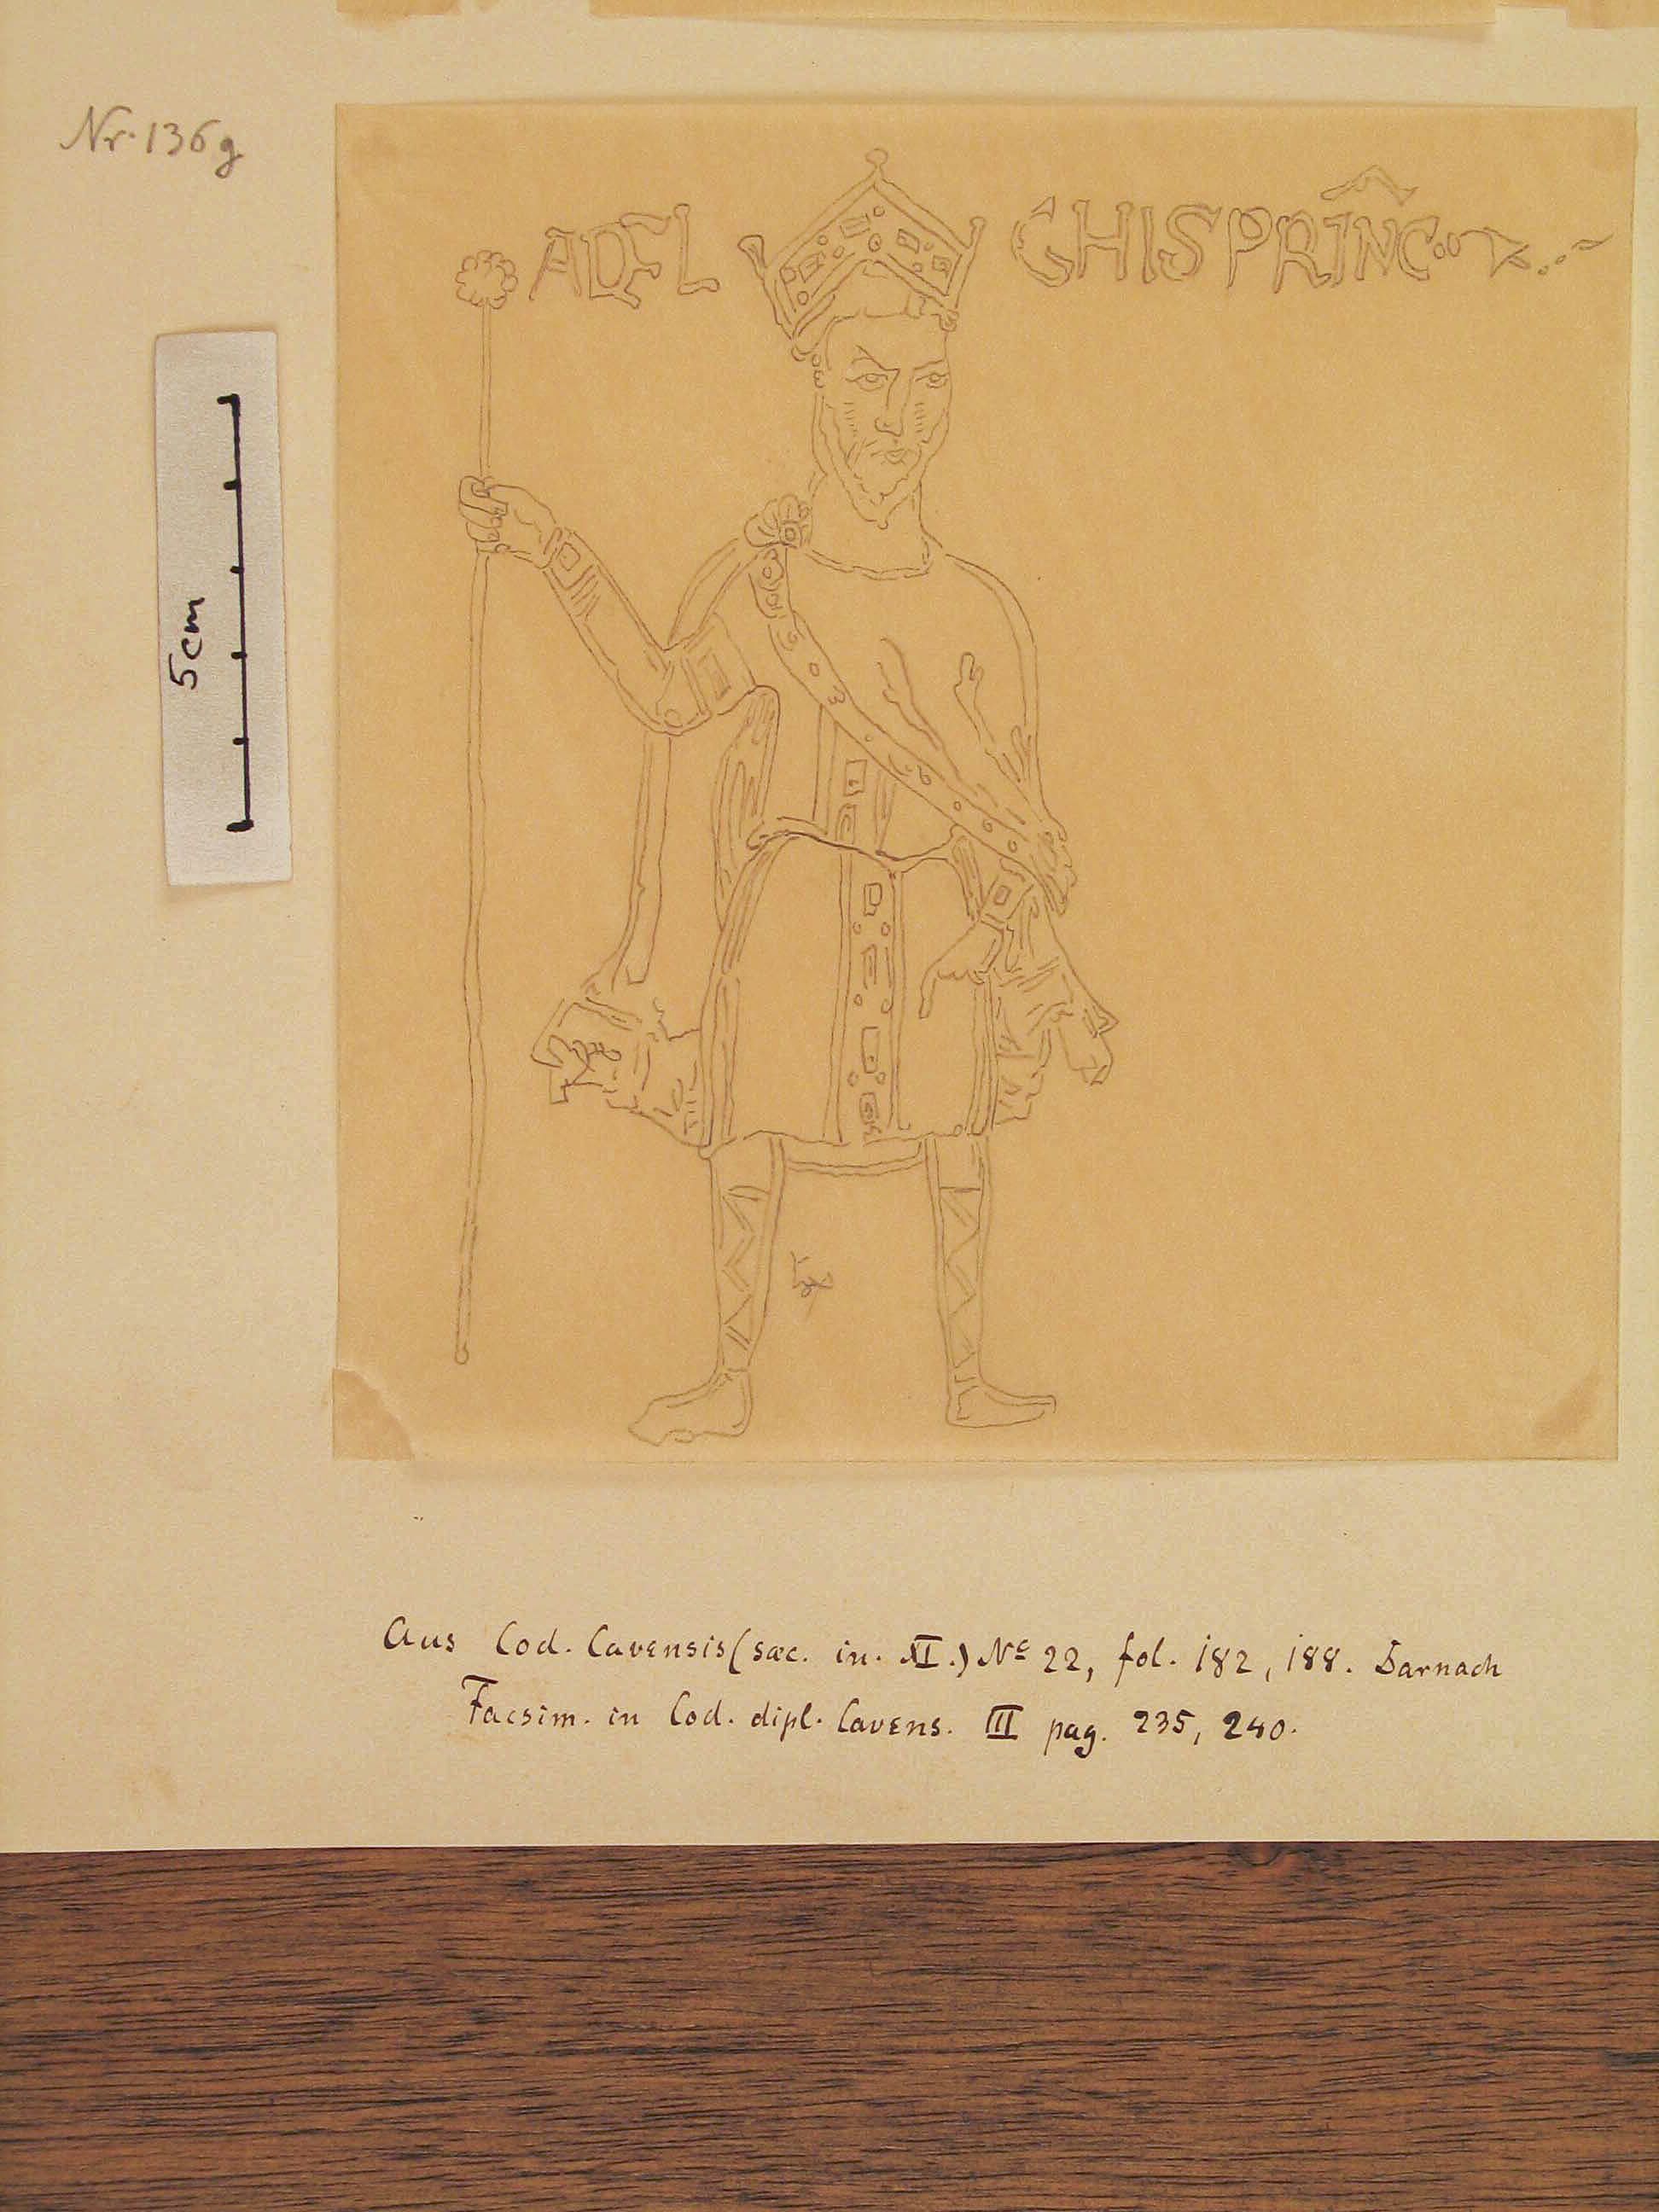 Nr. 136g
ADEL CHIS PRINC
5cm
Aus Cod. Cavensis (sæc. in. XI.) No 22, fol. 182, 188. Darnach
Facsim. in Cod. dipl. Cavens. III pag. 235, 240.